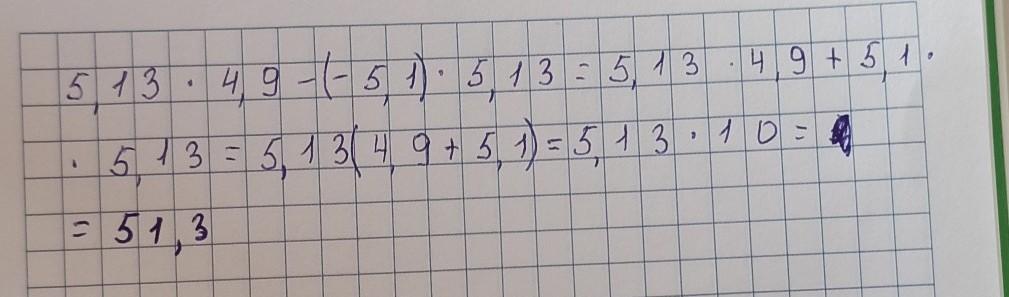 5,13 · 4,9 - (-5,1) · 5,13 = 5,13 · 4,9 + 5,1 ·
· 5,13 = 5,13(4,9 + 5,1) = 5,13 · 10 =
= 51,3